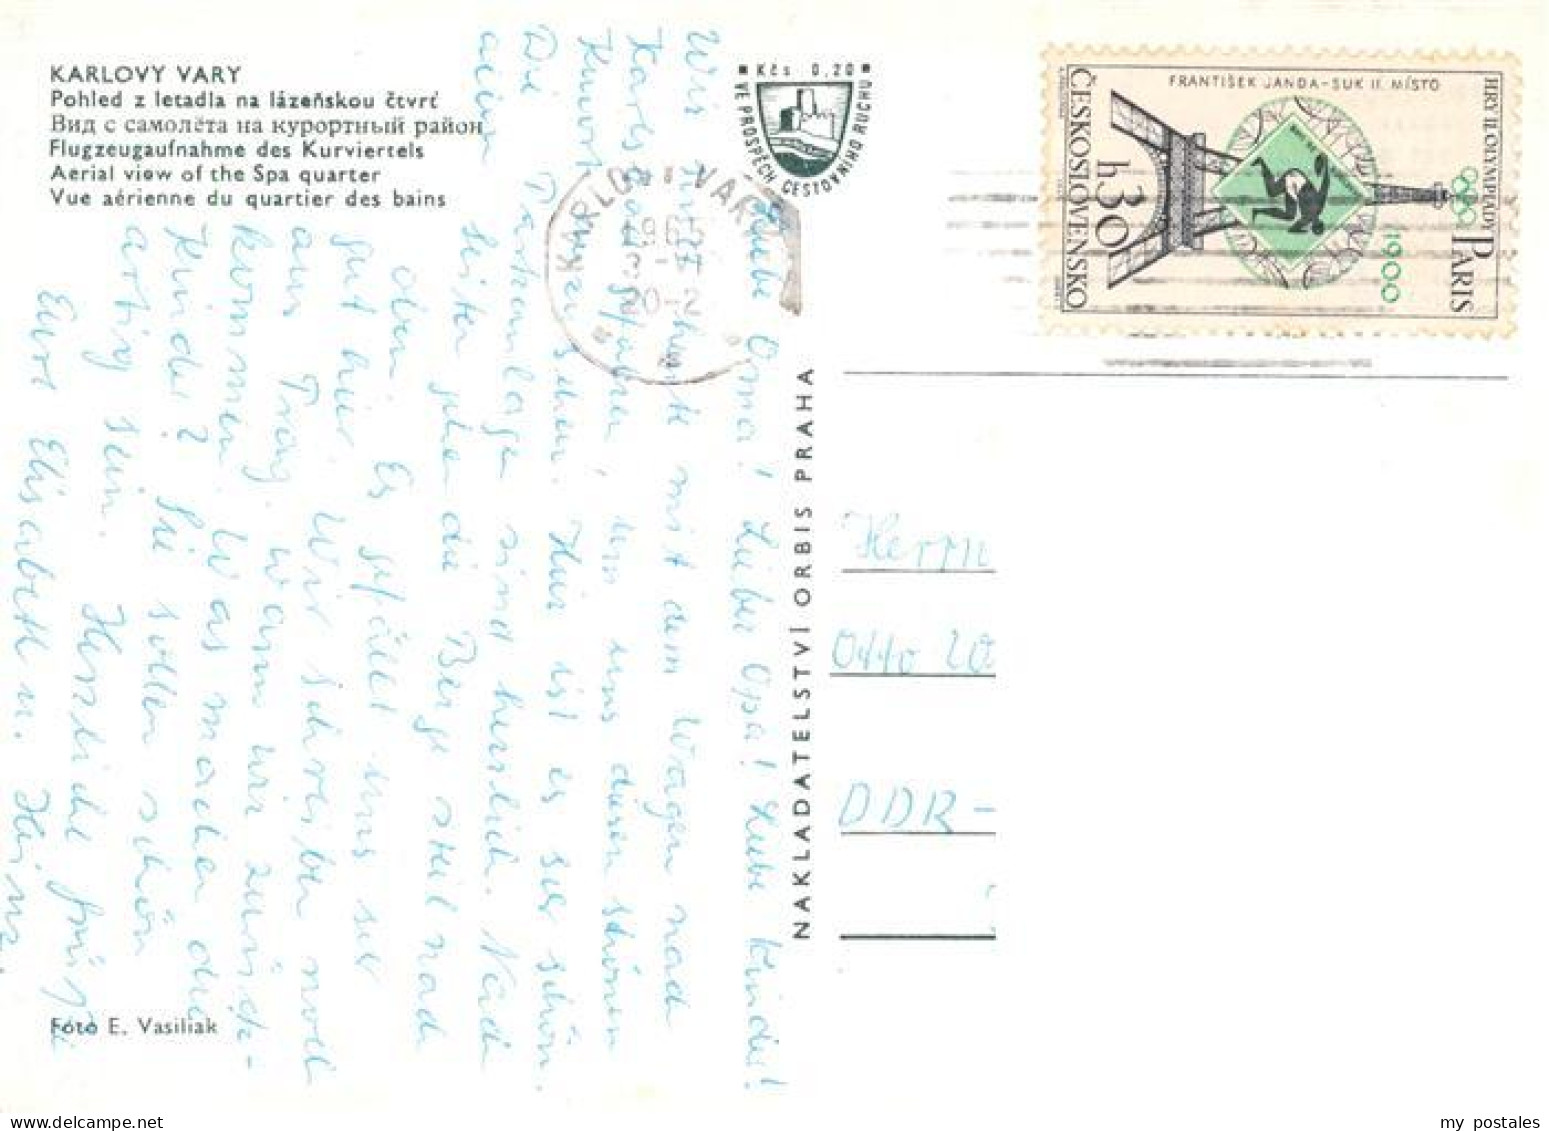 KARLOVY VARY
Pohled z letadla na lázeňskou čtvrť
Вид с самолёта на курортный район
Flugzeugaufnahme des Kurviertels
Aerial view of the Spa quarter
Vue aérienne du quartier des bains
Kčs 0,20
VE PROSPĚCH CESTOVNÍHO RUCHU
KARLOVY VARY
FRANTIŠEK JANDA-SUK II. MÍSTO
HRY II. OLYMPIADY
PARIS
1900
30h
ČESKOSLOVENSKO
Liebe Oma! Lieber Opa! Liebe Kinder!
Wir sind heute mit dem Wagen nach
Karlsbad gefahren, um uns diesen schönen
Kurort anzusehen. Hier ist es sehr schön.
Die Parkanlagen sind herrlich. Nach
allen Seiten gehen die Berge steil nach
oben. Es gefällt uns sehr
gut hier. Wir schreiben noch
aus Prag, wann wir zurück-
kommen. Was machen die
Kinder? Sie sollen schön
artig sein. Herzliche Grüße
Eure Elisabeth u. Heinz.
NAKLADATELSTVÍ ORBIS PRAHA
Herrn
Otto
DDR-
Foto E. Vasiliak
my postales